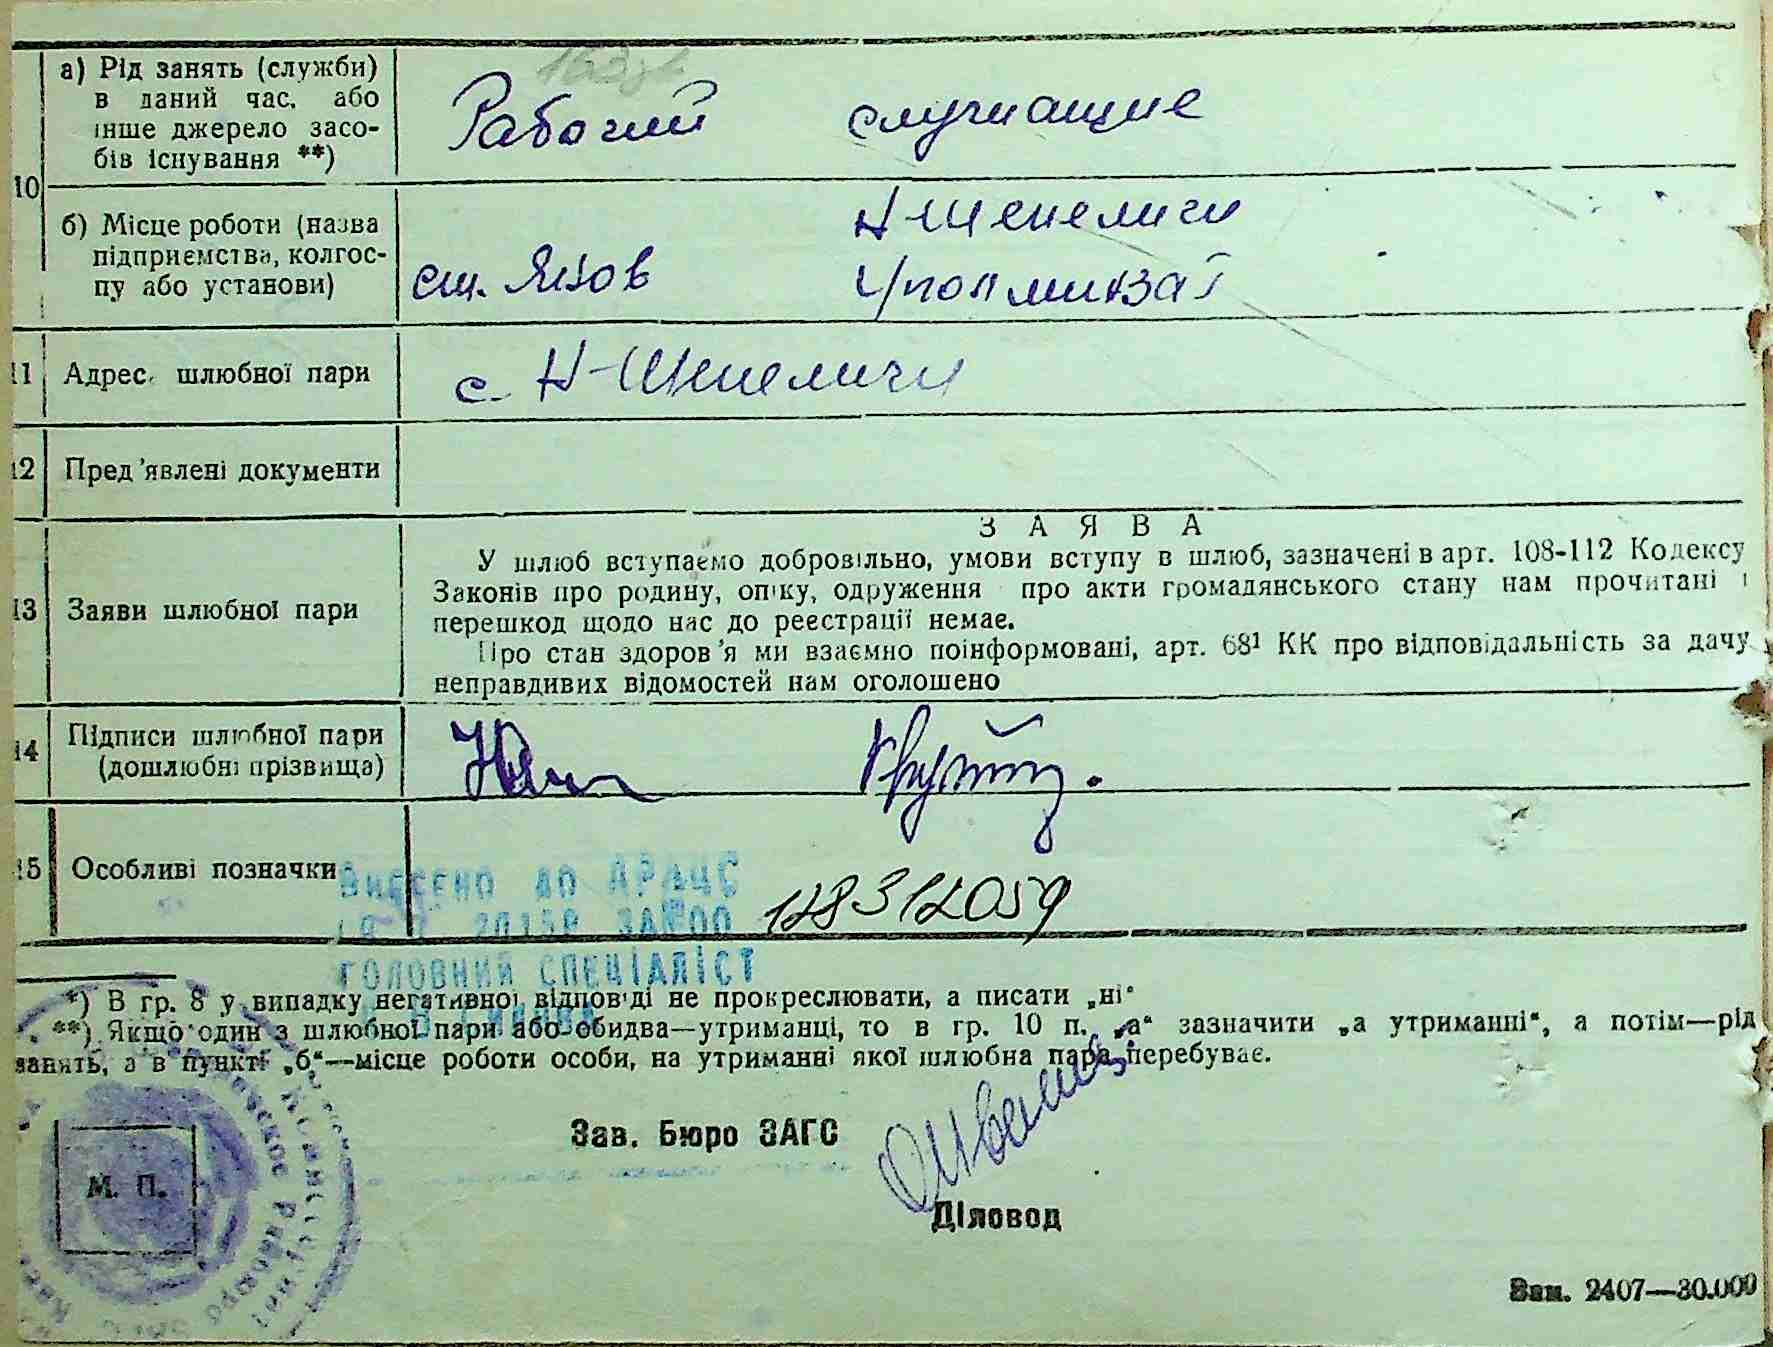 а) Рід занять (служби)
в даний час, або
інше джерело засо-
бів існування **)
Рабочий случиащие
10
б) Місце роботи (назва
підприємства, колгос-
пу або установи)
Н-Шепеличи
ст. Янов
Уполминзаг
11 Адрес шлюбної пари
с. Н-Шепеличи
12 Пред'явлені документи
ЗАЯВА
13 Заяви шлюбної пари
У шлюб вступаємо добровільно, умови вступу в шлюб, зазначені в арт. 108-112 Кодексу
Законів про родину, опіку, одруження про акти громадянського стану нам прочитані і
перешкод щодо нас до реєстрації немає.
Про стан здоров'я ми взаємно поінформовані, арт. 68¹ КК про відповідальність за дачу
неправдивих відомостей нам оголошено
14 Підписи шлюбної пари
(дошлюбні прізвища)
15 Особливі позначки
ВНЕСЕНО ДО ДРАЦС
2015Р ЗА №00
128312059
ГОЛОВНИЙ СПЕЦІАЛІСТ
*) В гр. 8 у випадку негативної відповіді не прокреслювати, а писати „ні“
**) Якщо один з шлюбної пари або обидва—утриманці, то в гр. 10 п. „а“ зазначити „а утриманні“, а потім—рід
занять, а в пункті „б“—місце роботи особи, на утриманні якої шлюбна пара перебуває.
Зав. Бюро ЗАГС
М. П.
Діловод
Зам. 2407—30.000